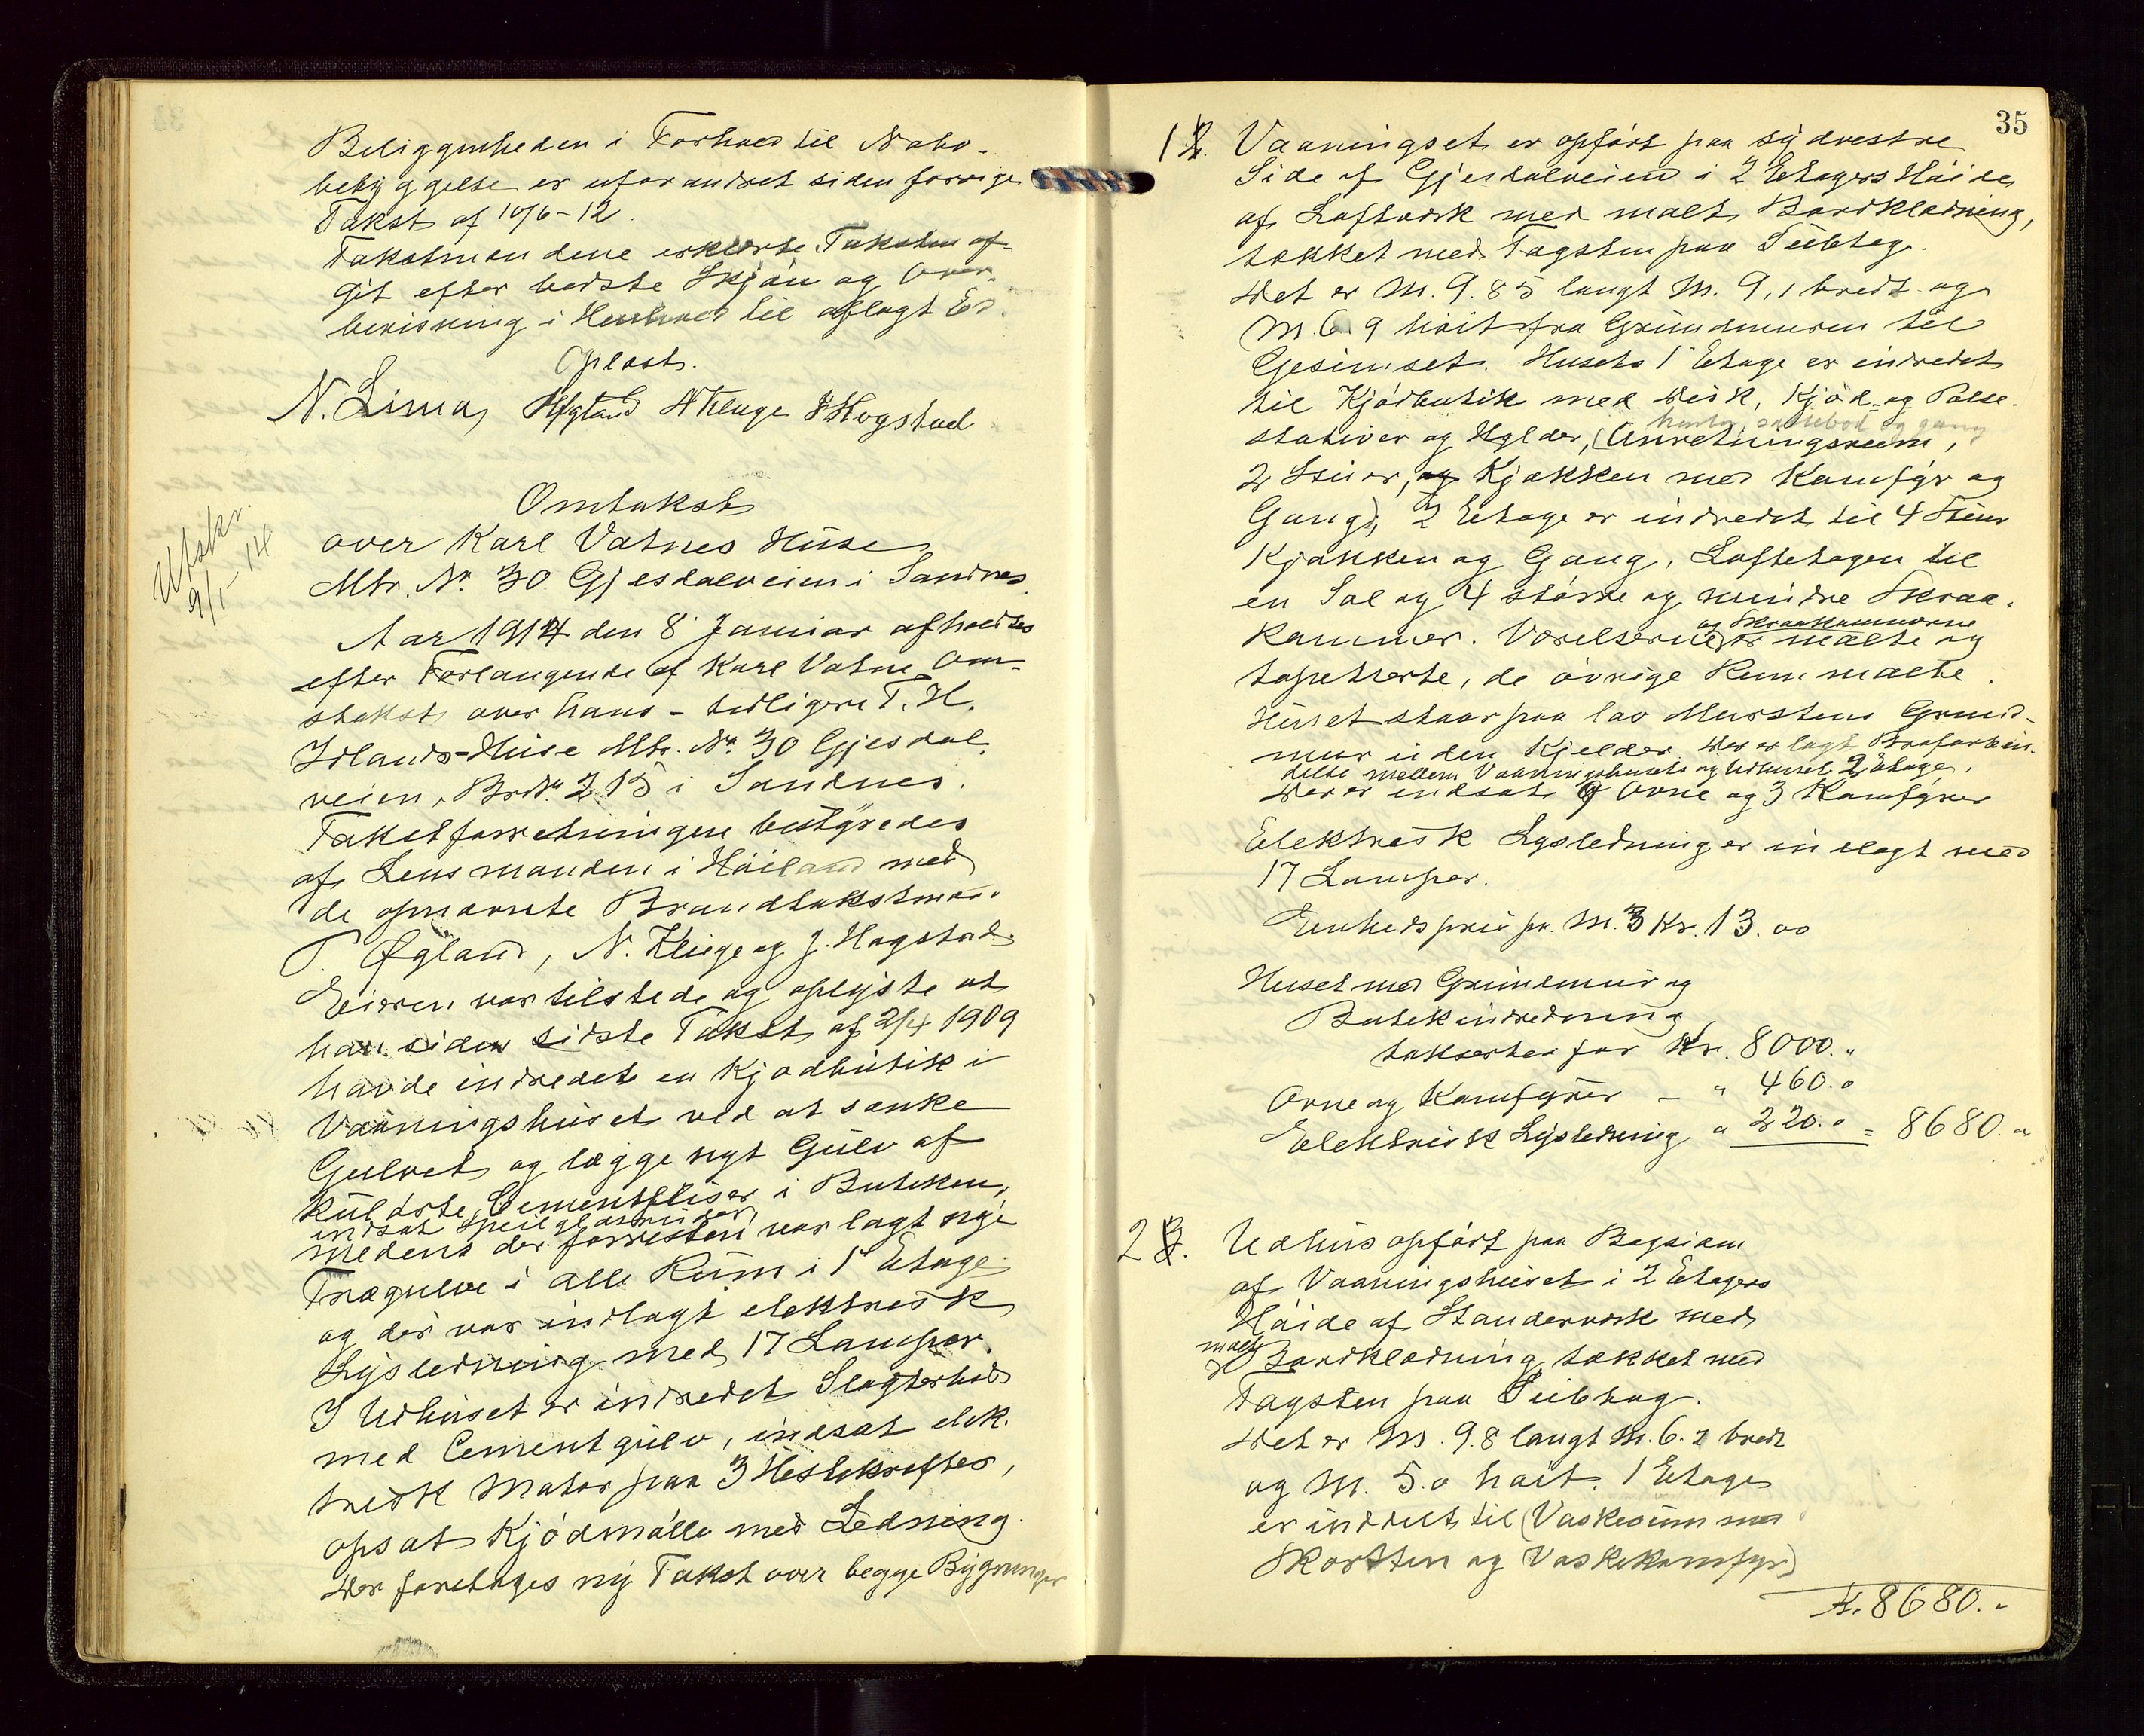 Beliggenheden i Forhold til Nabo-
bebyggelse er uforandret siden forrige
Takst af 10/6-12.
Takstmændene erklærte Taksten af-
git efter bedste Skjøn og Over-
bevisning i Henhold til aflagt Ed.
Oplæst.
N. Lima, Øgland N Kluge J Hogstad
Utskr.
9/1-14
Omtakst
over Karl Vatnes Huse
Mtr. Nr. 30 Gjesdalveien i Sandnes.
Aar 1914 den 8 Januar afholdtes
efter Forlangende af Karl Vatne Om-
stakst over hans - tidligere T. H.
Idlands-Huse Mtr. Nr. 30 Gjesdal-
veien, Br.Nr. 215 i Sandnes.
Takstforretningen bestyredes
af Lensmanden i Høiland med
de opnævnte Brandtakstmænd
T. Øgland, N. Kluge og J. Hogstad.
Eieren var tilstede og oplyste at
han siden sidste Takst af 2/4 1909
havde indredet en Kjødbutik i
Vaaningshuset ved at sænke
Gulvet og lægge nyt Gulv af
kulørte Cementfliser i Butiken,
indsat Speilglasruder,
medens der forresten var lagt nye
Trægulve i alle Rum i 1ste Etage
og der var indlagt elektrisk
Lysledning med 17 Lamper.
I Udhuset er indredet Slagterhus
med Cementgulv, indsat elek-
trisk Motor paa 3 Hestekræfter,
opsat Kjødmølle med Ledning.
Der foretages ny Takst over begge Bygninger
35
1. Vaaningset er opført paa sydvestre
Side af Gjesdalveien i 2 Etagers Høide
af Laftverk med malt Bordklædning,
tækket med Tagsten paa Subtage.
Det er M. 9.85 langt M. 9,1 bredt og
M. 6.9 høit fra Grundmuren til
Gesimset. Husets 1 Etage er indredet
til Kjødbutik med Disk, Kjød- og Pølse-
stativer og Hylder, (Anretningsrum,
og gang
2 Stuer, Kjøkken med Komfyr og
Gang), 2 Etage er indredet til 4 Stuer
Kjøkken og Gang, Loftetagen til
en Sal og 4 større og mindre Skraa-
kammer. Værelserne er malte og
og Skraakammerne
tapetserte, de øvrige Rum malte.
Huset staar paa lav Murstens Grund-
mur uden Kjelder. Der er lagt Broforbin-
delse mellem Vaaningshusets og Udhuset 2 Etage.
Der er indsat 9 Ovne og 3 Komfyrer
Elektrisk Lysledning er indlagt med
17 Lamper.
Enhedspris pr. M.3 Kr. 13.00
Huset med Grundmur og
Butikindredning
takseres for Kr. 8000.-
Ovne og Komfyrer - " 460.-
Elektrisk Lysledning " 220.- = 8680.-
2. Udhus opført paa Bagsiden
af Vaaningshuset i 2 Etagers
Høide af Standerverk med
malt
Bordklædning tækket med
Tagsten paa Subtag.
Det er M. 9.8 langt M. 6.2 bredt
og M. 5.0 høit. 1 Etage
er indredet til (Vaskerum med
Skorsten og Vaskekomfyr)
Kr. 8680.-